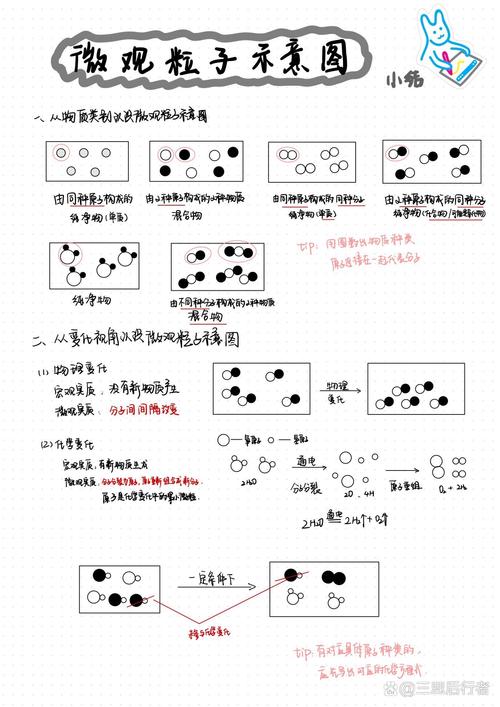 微观粒子示意图
小结
一、从物质类别认识微观粒子示意图
由同种原子构成的
纯净物(单质)
由2种原子构成的2种物质
混合物
由同种原子构成的同种分子
纯净物(单质)
由2种原子构成的同种分子
纯净物
tip: 用圈数出物质种类
原子连接在一起代表分子
纯净物
由不同种分子构成的2种物质
混合物
二、从变化视角认识微观粒子示意图
(1) 物理变化
宏观实质: 没有新物质产生
微观实质: 分子间间隔改变
物理
变化
(2) 化学变化
宏观实质: 有新物质生成
微观实质: 分子分裂为原子,原子重新组合成新分子.
原子是化学变化中的最小微粒.
氧原子
氢原子
2H₂O
通电
分子分裂
2O 、4H
原子重组
O₂ + 2H₂
2H₂O 通电 2H₂↑ + O₂↑
一定条件下
未参与化学变化
tip: 有对应具体原子种类的,
应先写出对应的化学方程式.
三思后行者